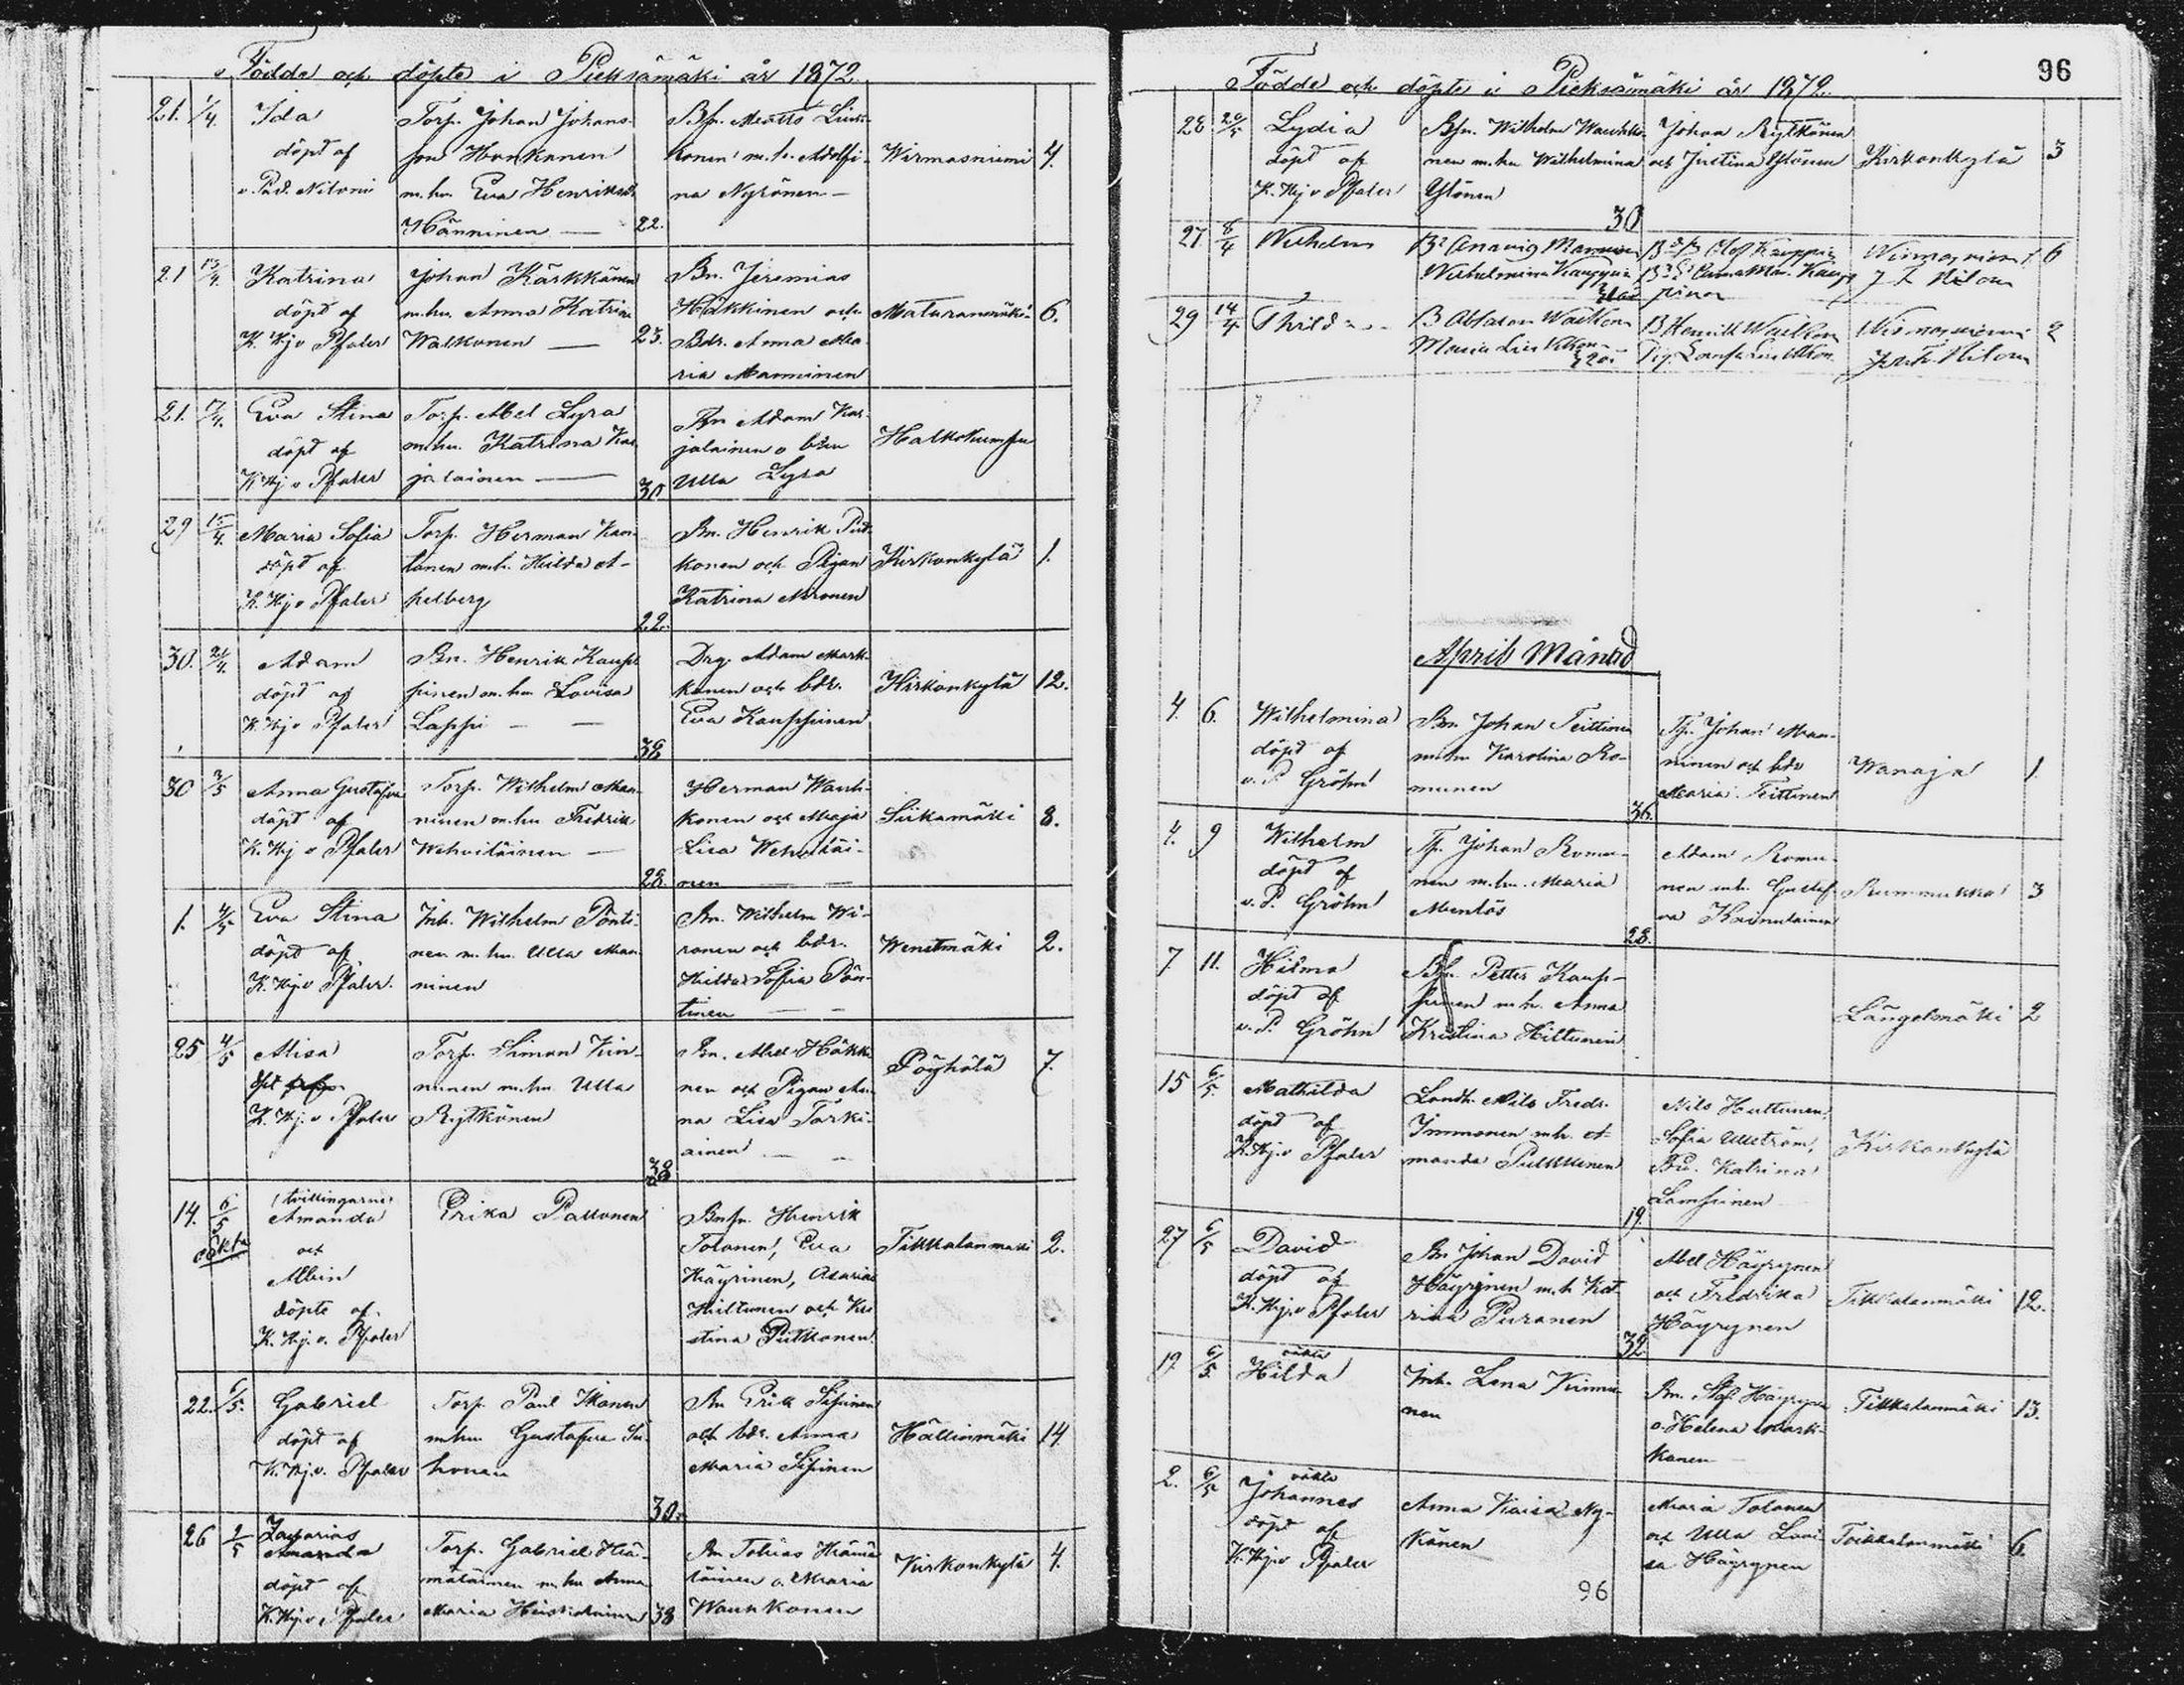 Födde och döpte i Pieksämäki år 1872.
21. 1/4. Ida döpt af v. Past. Nilonis
Torp. Johan Johans-
son Honkanen
m. hu Eva Henriksdr
Hänninen — 22.
Bsn. Matts Liuk-
konen m. h. Adolfi-
na Nyrönen —
Wirmasniemi 4.
21 13/4. Katrina döpt af K. Hj. v Pfaler
Johan Kärkkänen
m. hu. Anna Katrina
Walkonen — 23.
Bn. Jeremias
Häkkinen och
Bdr. Anna Ma-
ria Manninen
Maturanmäki 6.
21. 7/4. Eva Stina döpt af K Hj v Pfaler
Torp. Abel Lyra
m. hu. Katrina Kar-
jalainen — 30
Bn Adam Kar-
jalainen o bdr
Ulla Lyra
Halkokumpu
29 15/4. Maria Sofia döpt af K. Hj v Pfaler
Torp. Herman Kau-
tanen m. h. Hilda A-
pelberg 22.
Bn. Henrik Put-
konen och Pigan
Katrina Mronen
Kirkonkylä 1.
30. 21/4. Adam döpt af K. Hj v Pfaler
Bn. Henrik Kaup-
pinen m. hu Lovisa
Lappi — — 38
Drg. Adam Mark-
kanen och bdr.
Eva Kauppinen
Kirkonkylä 12.
30 3/5 Anna Gustafva döpt af K. Hj v Pfaler
Torp. Wilhelm Man-
ninen m. hu Fredrika
Wehviläinen — 28.
Herman Wauh-
konen och Maja
Lisa Wehviläi-
nen — —
Siikamäki 8.
1. 4/5 Eva Stina döpt af K. Hj. v Pfaler.
Inh. Wilhelm Pönti-
nen m. hu. Ulla Man-
ninen
Bn. Wilhelm Wi-
ranen och bdr.
Hilda Sofia Pön-
tinen — —
Wenetmäki 2.
25 4/5 Alisa K. Hj. v Pfaler
Torp. Simon Kin-
nunen m. hu Ulla
Rytkönen 38
Bn. Abel Häkki-
nen och Pigan An-
na Lisa Torki-
ainen — —
Pöyhölä 7.
14. 6/5 oäkta
(tvillingarne)
Amanda
och
Albin
döpte af
K. Hj. v. Pfaler
Erika Paldanen
Bnsn. Henrik
Tolonen, Eva
Häyrinen, Asarias
Hiltunen och Kri-
stina Putkonen.
Tikkalanmäki 2.
22. 6/5. Gabriel döpt af K. Hj. v. Pfaler
Torp. Paul Ikonen
m. hu Gustafva Su-
honen 30.
Bn Erik Sipinen
och bdr. Anna
Maria Sipinen
Hällinmäki 14
26 9/5 Zacharias
Amanda
döpt af
K. Hj. v Pfaler
Torp. Gabriel Hä-
mäläinen m. hu Anna
Maria Heiskalainen 38
Bn Tobias Hämä-
läinen o. Maria
Wauhkonen
Kirkonkylä 4.
96
Födde och döpte i Pieksämäki år 1872.
28. 20/5 Lydia döpt af K. Hj v Pfaler
Bsn. Wilhelm Wauhko-
nen m. hu Wilhelmina
Ylönen 30
Johan Rytkönen
och Justina Ylönen
Kirkonkylä 3
27 8/4 Wilhelm
Wilhelmina Kauppin
Olof Kauppin
6
29 14/4
B Absalon
B Henrik
2
April Månad
4. 6. Wilhelmina döpt af v. P Gröhn
Bn. Johan Teittinen
m. hu Karolina Ro-
munen 36.
Tp. Johan Man-
ninen och bdr
Maria Teittinen
Wanaja 1.
4. 9 Wilhelm döpt af v. P. Gröhn
Tp. Johan Romu-
nen m. hu. Maria
Mentös 28.
Adam Romu-
nen m. h. Gustaf-
va Kaunulainen
Rummukka 3
7. 11. Hilma döpt af v. P. Gröhn
Bsn. Petter Kaup-
pinen m. h. Anna
Kristina Hiltunen
Längelmäki 2
15 6/5. Mathilda döpt af K. Hj. v Pfaler
Landh. Nils Fredr.
Immonen m. h. A-
manda Pulkkinen 19.
Nils Huttunen,
Sofia Ullström,
Katrina
Lampinen
Kirkonkylä
27 6/5 David döpt af K. Hj. v Pfaler
Bn Johan David
Häyrynen m. h Kat-
rina Puranen 32.
Abel Häyrynen
och Fredrika
Häyrynen
Tikkalanmäki 12.
17 6/5. oäkta
Hilda
Inh. Lena Kinnu-
nen
Bn. Häyrynen
o. Helena Mark-
kanen
Tikkalanmäki 13.
2. 6/5 oäkta
Johannes
döpt af
K. Hj. v Pfaler
Anna Kaisa Ny-
känen
Maria Tolonen
och Ulla Lovi-
sa Häyrynen
Tikkalanmäki 6.
96